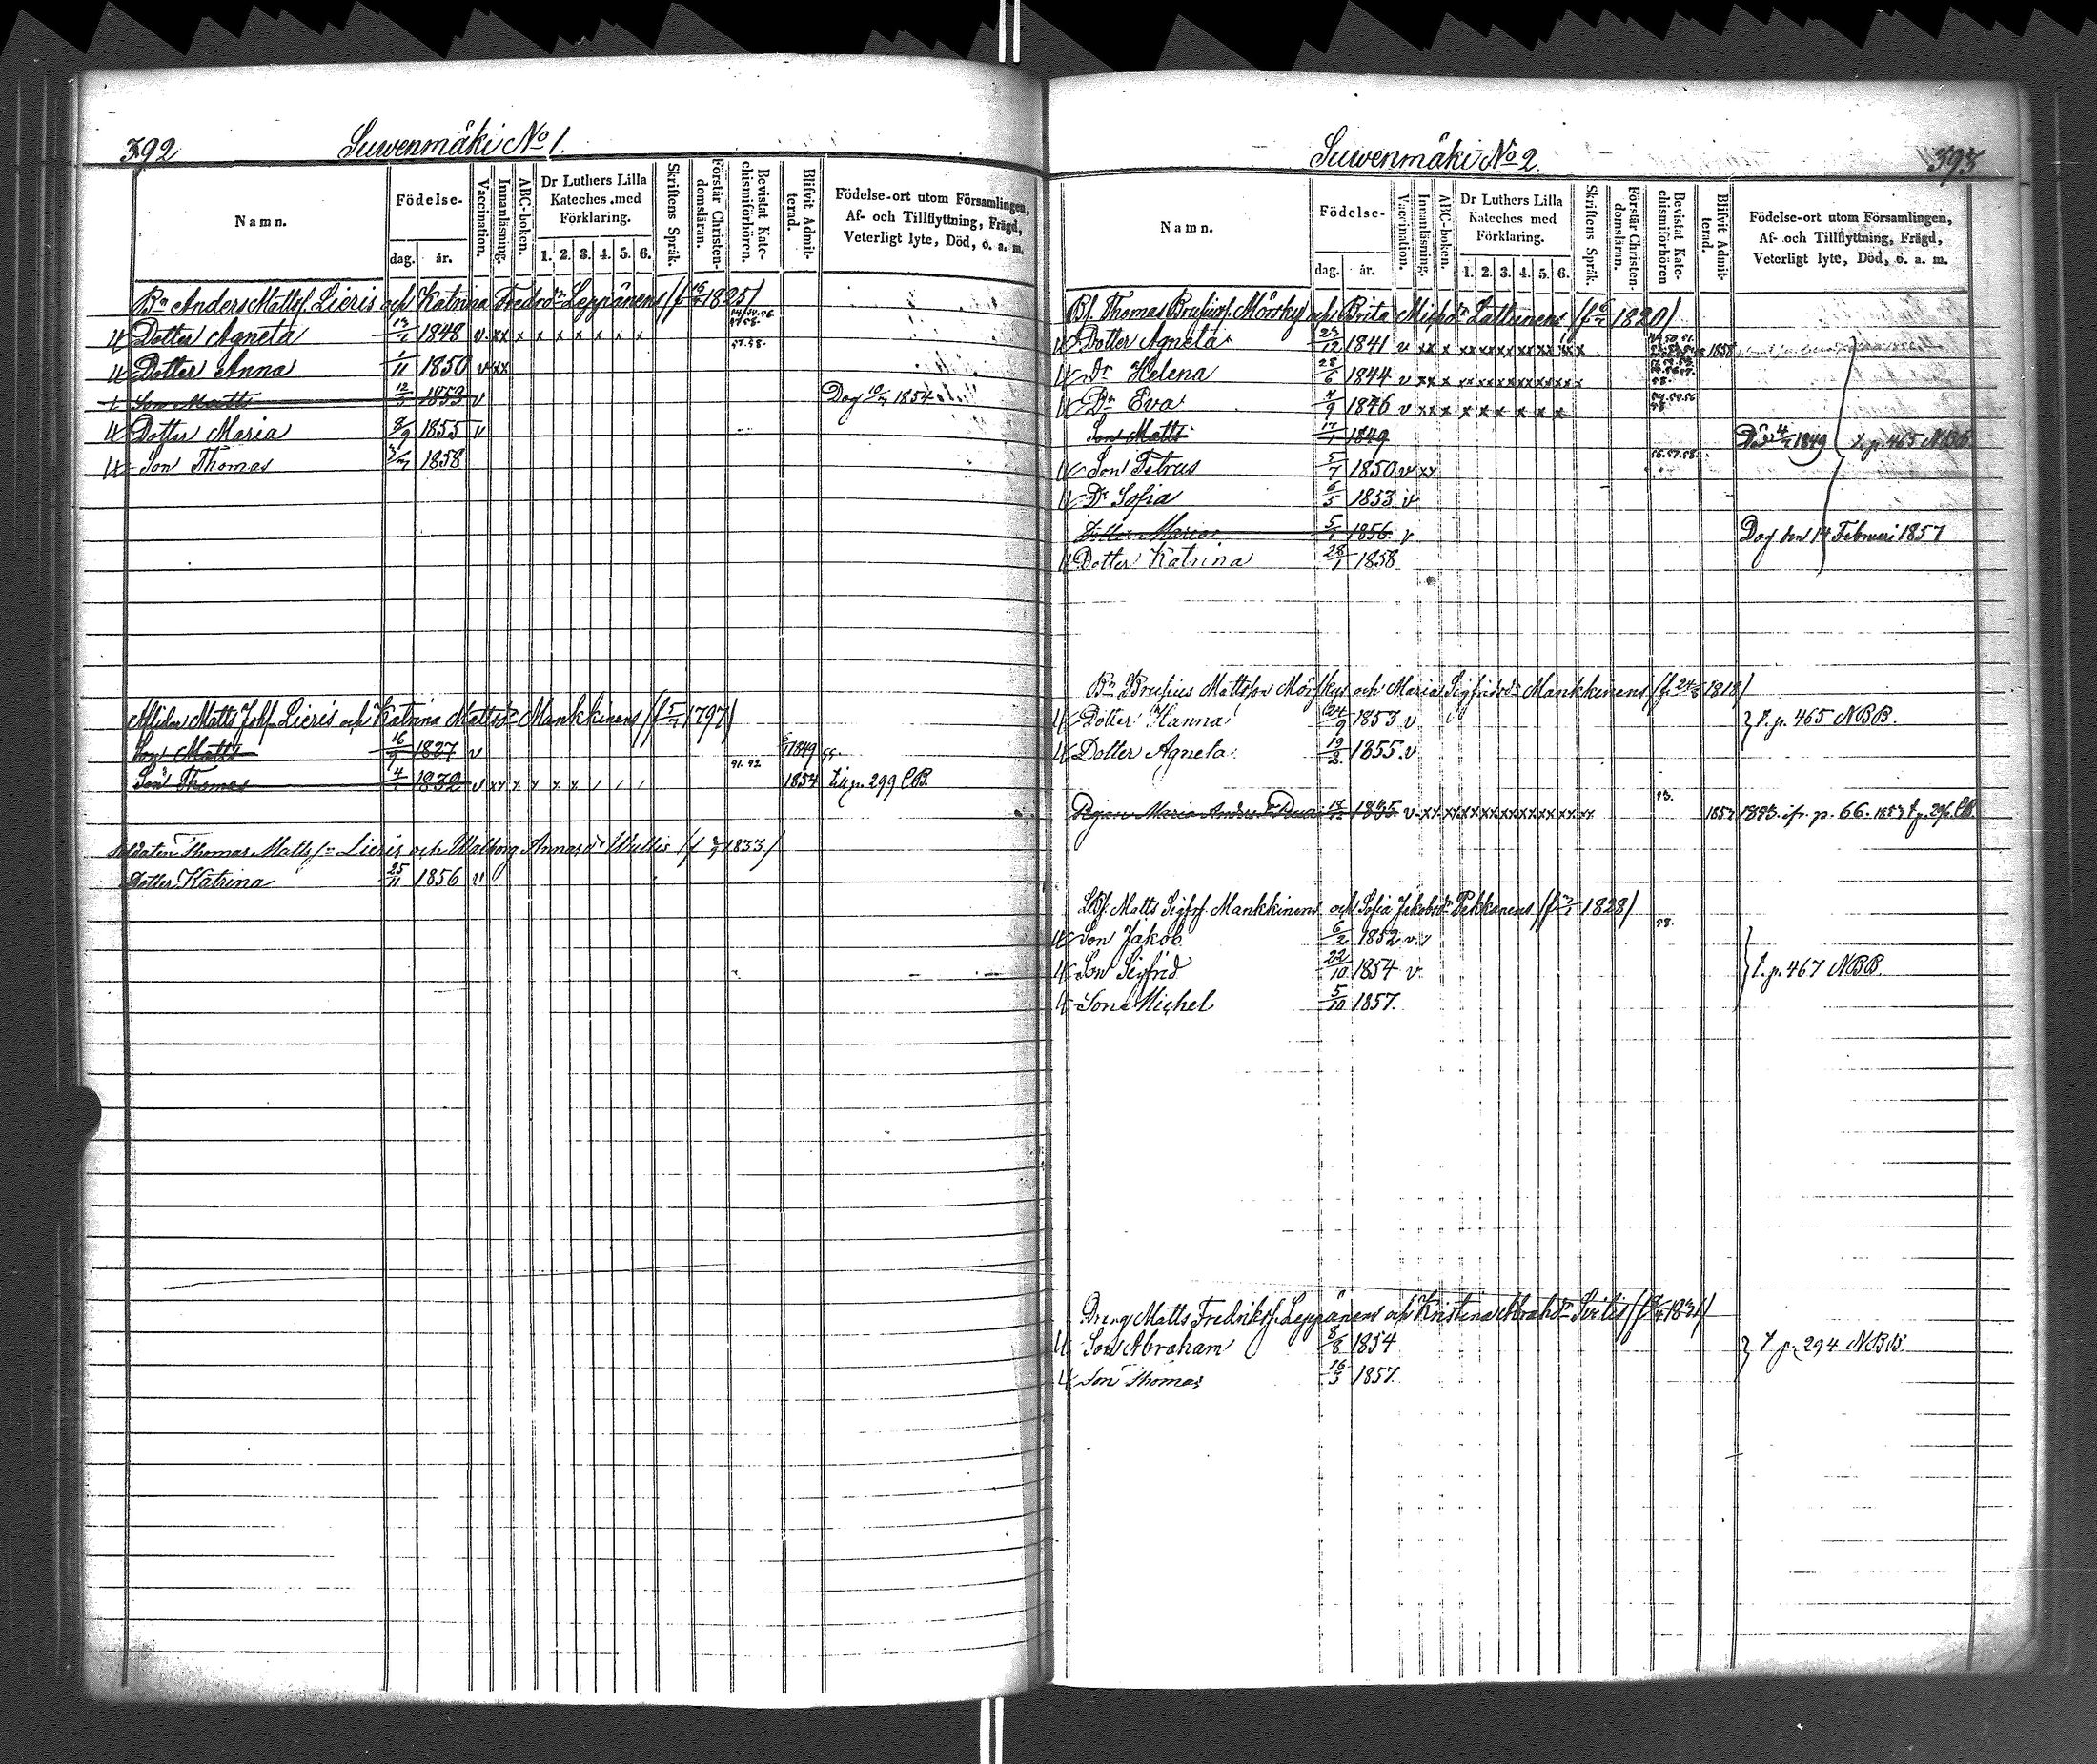 392
Suwenmäki No 1.
Namn.
Födelse-
dag.
år.
Vaccination.
Innanläsning.
ABC-boken.
Dr Luthers Lilla
Kateches med
Förklaring.
1. 2. 3. 4. 5. 6.
Skriftens Språk.
Förstår Christen-
domsläran.
Bevistat Kate-
chismiförhören.
Blifvit Admit-
terad.
Födelse-ort utom Församlingen,
Af- och Tillflyttning, Frägd,
Veterligt lyte, Död, o. a. m.
Bn Anders Mattss. Lieris och Katrina Fredrdr Leppänens (f 1825)
Dotter Agneta 1848 v xx x x x x x x x
57.58.
Dotter Anna 1/11 1850 v xx
Son Matts 1853 v Dog 1854
Dotter Maria 8/9 1855 v
Son Thomas 1858
Matts Lieris och Katrina Mattsdr Mankkinens (f 1797)
Son Matts 16/9 1827 v 1849
Son Thomas 1832 v xx x x x x / / / 51. 52 1854 p. 299 CB.
Soldaten Thomas Mattss. Lieris och Walborg Annasdr Wullis (f 1833)
Dotter Katrina 25/11 1856 v
Suwenmäki No 2.
393.
Namn.
Födelse-
dag.
år.
Vaccination.
Innanläsning.
ABC-boken.
Dr Luthers Lilla
Kateches med
Förklaring.
1. 2. 3. 4. 5. 6.
Skriftens Språk.
Förstår Christen-
domsläran.
Bevistat Kate-
chismiförhören
Blifvit Admit-
terad.
Födelse-ort utom Församlingen,
Af- och Tillflyttning, Frägd,
Veterligt lyte, Död, o. a. m.
Thomas Mörsky och Brita Michsdr (f 1820)
Dotter Agneta 23/12 1841 v xx x 1858
Dr Helena 28/6 1844 v xx x
Dr Eva 4/9 1846 v xx x x x x x x x
Son Matts 1849 1849 t. p. 465 NBB.
56.57.58.
Son Petrus 5/7 1850 v xx
Dr Sofia 6/5 1853 v
Dotter Maria 1856 v Dog den 14 Februari 1857
Dotter Katrina 28/1 1858
Bn Brusius Mattsson Mörskys och Maria Sigfridsdr Mankkinens (f. 1818)
Dotter Hanna 24/9 1853 v
t. p. 465 NBB.
Dotter Agneta 1855 v
Pigan Maria Andersdr 1835 v xx 53. 1853 ifr. p. 66.
Matts Sigfrs. Mankkinens och Sofia Jakobsdr Pekkanens (f 1828)
Son Jakob 6/2 1852 v 58.
Son Sigfrid 22/10 1854 v
t. p. 467 NBB.
Son Michel 5/10 1857.
Dreng Matts Fredrikss. Leppänens och Kristina Abrahdr (f 1831)
Son Abraham 8/8 1854
t p. 294 NBB.
Son Thomas 16/3 1857.